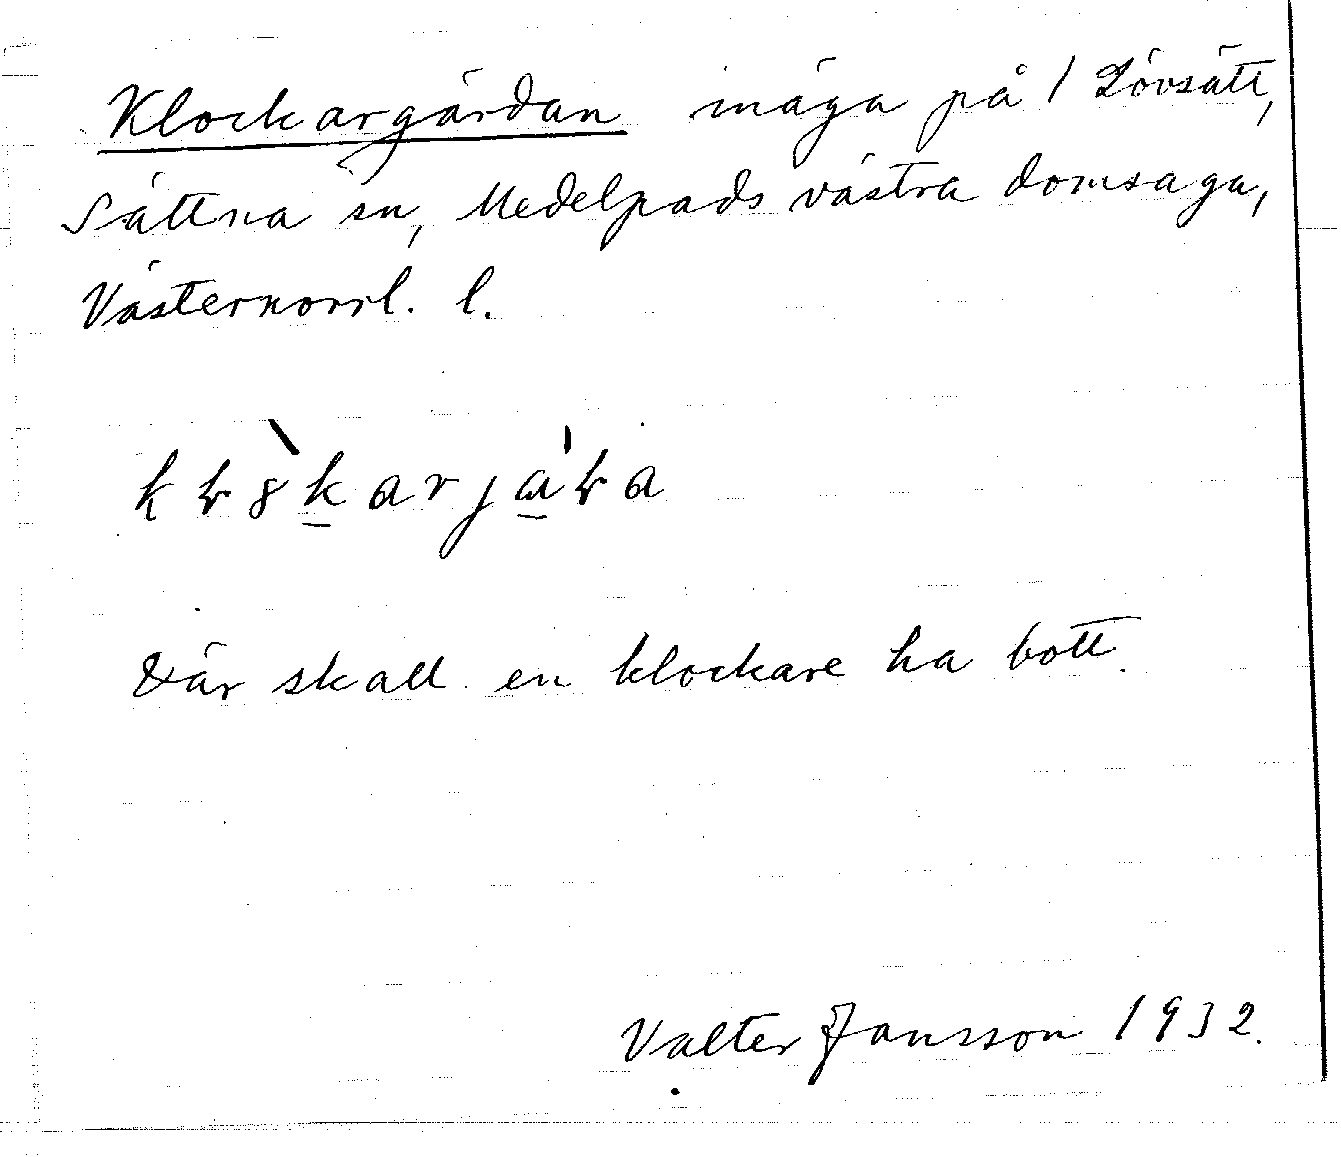 Klockargärdan inäga på 1 Lövsätt,
Sättna sn, Medelpads västra domsaga,
Västernorrl. l.
Där skall en klockare ha bott.
Valter Jansson 1932.